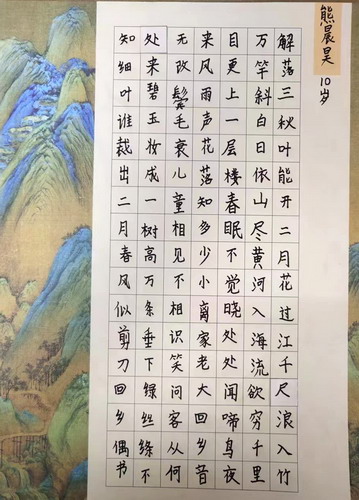 熊晨昊 10岁
解落三秋叶能开二月花过江千尺浪入竹
万竿斜白日依山尽黄河入海流欲穷千里
目更上一层楼春眠不觉晓处处闻啼鸟夜
来风雨声花落知多少小离家老大回乡音
无改鬓毛衰儿童相见不相识笑问客从何
处来碧玉妆成一树高万条垂下绿丝绦不
知细叶谁裁出二月春风似剪刀回乡偶书